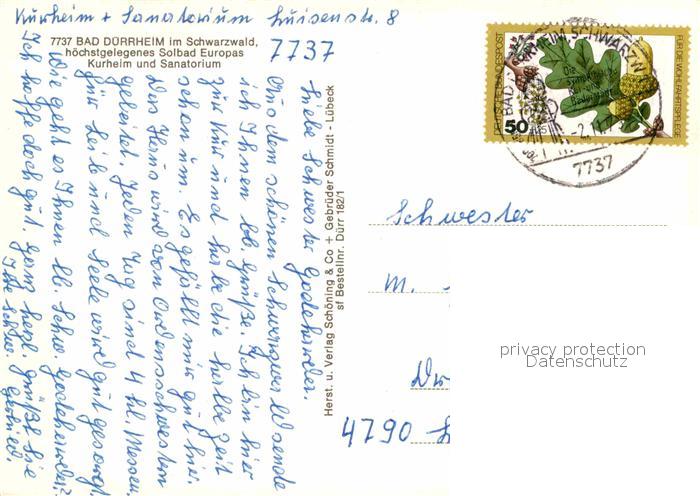 Kurheim + Sanatorium Luisenstr. 8
7737 BAD DÜRRHEIM im Schwarzwald,
höchstgelegenes Solbad Europas
Kurheim und Sanatorium
7737
Liebe Schwester Godeharder.
Aus dem schönen Schwarzwald sende
ich Ihnen lb. Grüße. Ich bin hier
zur Kur und habe die halbe Zeit
schon um. Es gefällt mir gut hier.
Das Haus wird von Ordensschwestern
geleitet. Jeden Tag sind 4 hl. Messen.
für Leib und Seele wird gut gesorgt.
Wie geht es Ihnen lb. Schw.
Ich hoffe doch gut. Ganz herzl. grüßt Sie
Ihre Schw.
Herst. u. Verlag Schöning & Co + Gebrüder Schmidt - Lübeck
sf Bestellnr. Dürr 182/1
DEUTSCHE BUNDESPOST
FÜR DIE WOHLFAHRTSPFLEGE
50
BAD DÜRRHEIM SCHWARZW
7737
Schwester
M.
4790
privacy protection
Datenschutz